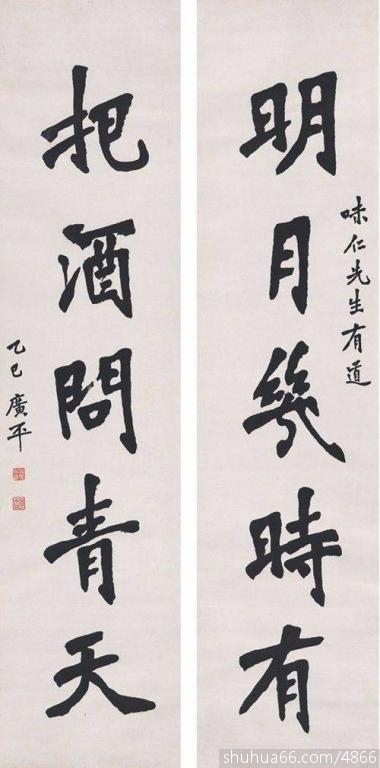 明月幾時有
味仁先生有道
把酒問青天
乙巳廣平
shuhua66.com/4866